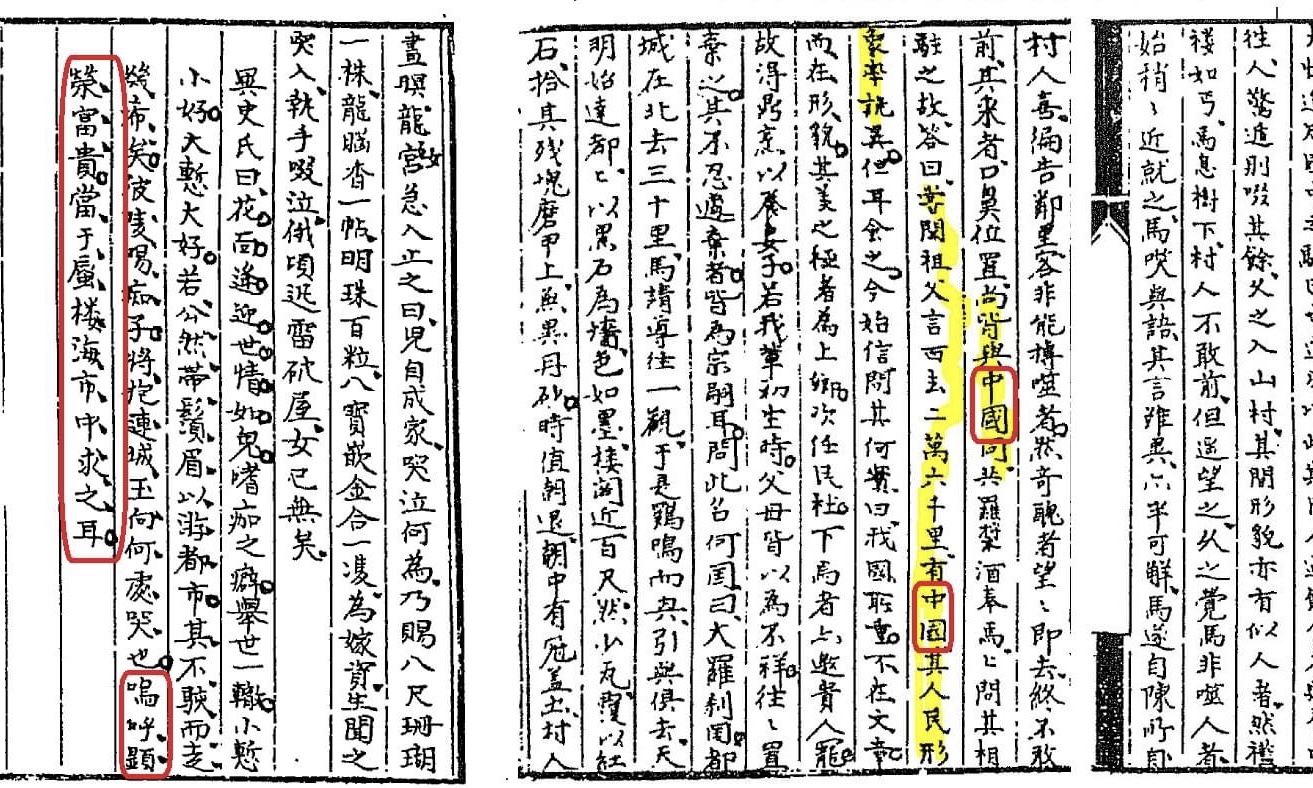 往人驚進則啜其餘久之入山村其間形貌亦有似人者然襤
褸如丐馬息樹下村人不敢前但遥望之久之覺馬非噬人者
始稍〻近就之馬笑與語其言雖異亦半可解馬遂自陳所自
村人喜徧告鄰里客非能搏噬者然奇醜者望〻即去終不敢
前其來者口鼻位置尚皆與中國同共羅漿酒奉馬〻問其相
駭之故答曰嘗聞祖父言西去二萬六千里有中國其人民形
象率詭異但耳食之今始信問其何貧曰我國所重不在文章
而在形貌其美之極者為上卿次任民社下焉者亦邀貴人寵
故得鼎烹以養妻子若我輩初生時父母皆以為不祥往〻置
棄之其不忍遽棄者皆為宗嗣耳問此名何国曰大羅刹国都
城在北去三十里馬請導往一觀于是鷄鳴而興引與俱去天
明始達都〻以黑石為墻色如墨樓閣近百尺然少瓦覆以紅
石拾其殘塊磨甲上無異丹砂時值朝退朝中有冠盖出村人
晝暝龍宮女急入止之曰兒自成家哭泣何為乃賜八尺珊瑚
一株龍腦香一帖明珠百粒八寶嵌金合一雙為嫁資生聞之
突入執手啜泣俄頃迅雷破屋女已無矣
異史氏曰花面逢迎世情如鬼嗜痂之癖舉世一轍小慙
小好大慙大好若公然帶鬚眉以游都市其不駭而走
幾希矣彼陵陽痴子將抱連城玉向何處哭也嗚呼顯
榮富貴當于蜃楼海市中求之耳